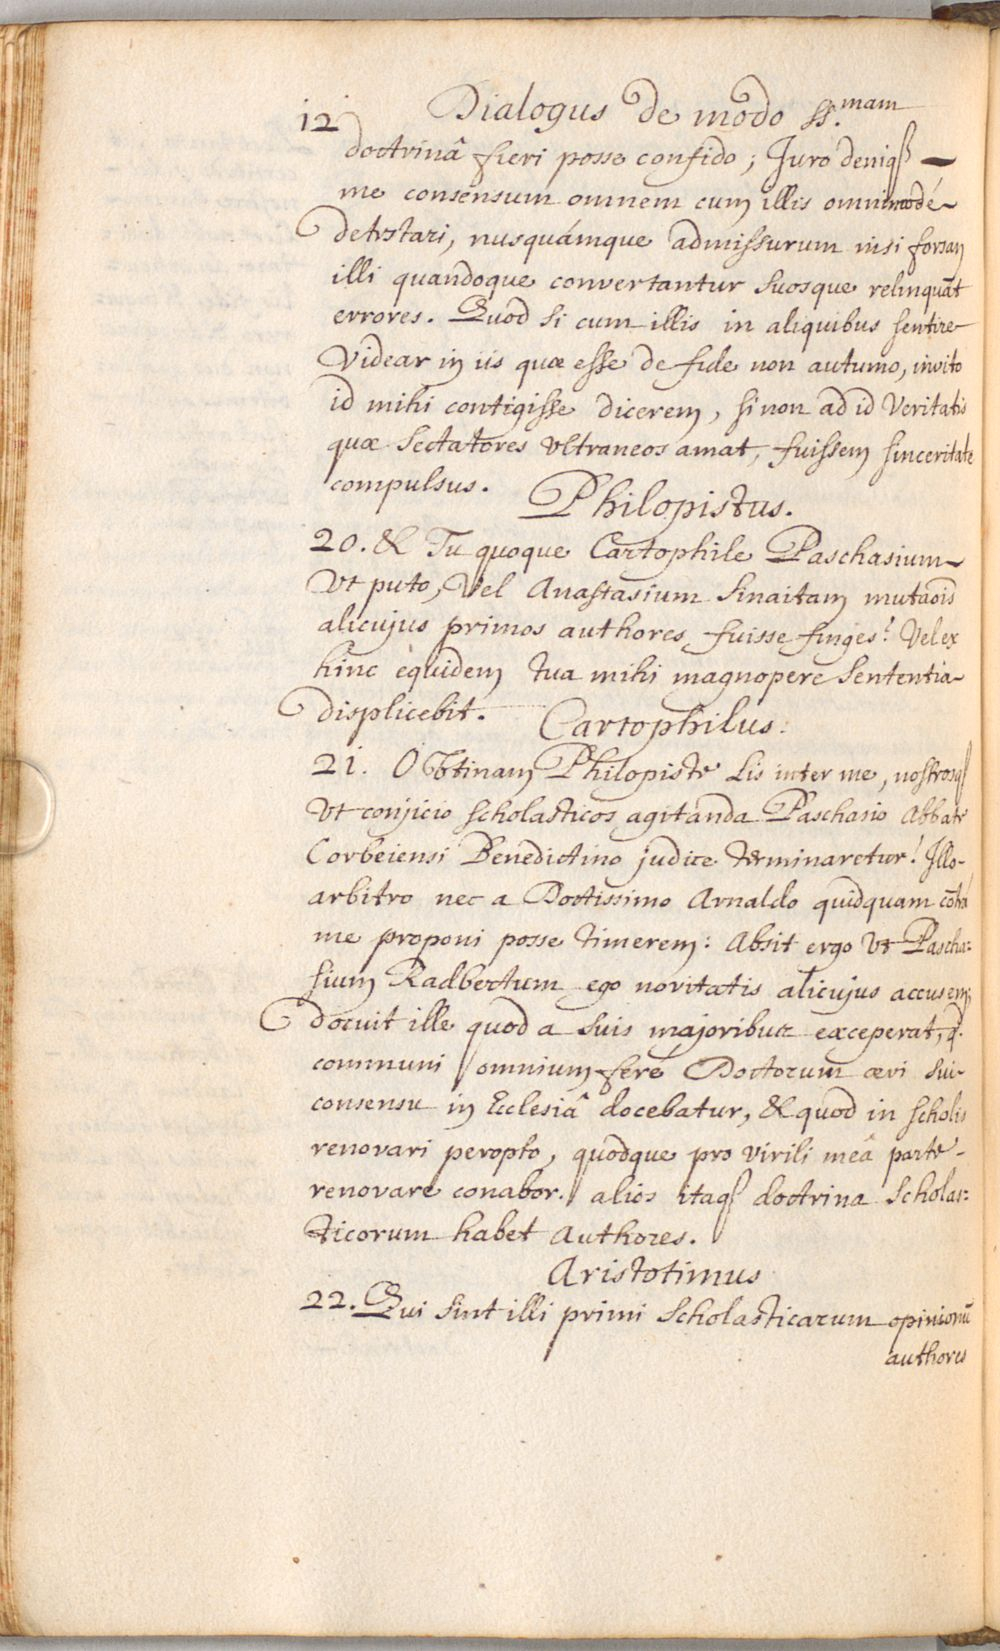 12 Dialogus de modo ss.mam
doctrinâ fieri posse confido; Juro deniq
me consensum omnem cum illis omnimodé
detestari, nusquámque admissurum nisi forsan
illi quandoque convertantur suosque relinquāt
errores. Quod si cum illis in aliquibus sentire
videar in iis quæ esse de fide non autumo, invito
id mihi contigisse dicerem, si non ad id Veritatis
quæ Sectatores ultraneos amat, fuissem sinceritate
compulsus.
Philopistus.
20. & Tu quoque Cartophile Paschasium
Ut puto, Vel Anastasium Sinaitam mutaõis
alicujus primos authores fuisse finges? Vel ex
hinc equidem tua mihi magnopere Sententia
displicebit.
Cartophilus:
21. O Utinam Philopiste Lis inter me, nostrosq
Ut conjicio scholasticos agitanda Paschasio Abbate
Corbeiensi Benedictino judice terminaretur! Illo
arbitro nec a Doctissimo Arnaldo quidquam cõtra
me proponi posse timerem: Absit ergo Ut Pascha:
sium Radbertum ego novitatis alicujus accusem
docuit ille quod a suis majoribus exceperat, q.
communi omnium feré Doctorum ævi sui
consensu in Ecclesiâ docebatur, & quod in scholis
renovari peropto, quodque pro virili meâ parte
renovare conabor. alios itaq doctrina Scholas:
ticorum habet Authores.
Aristotimus
22. Qui sint illi primi Scholasticarum opinionū
authores